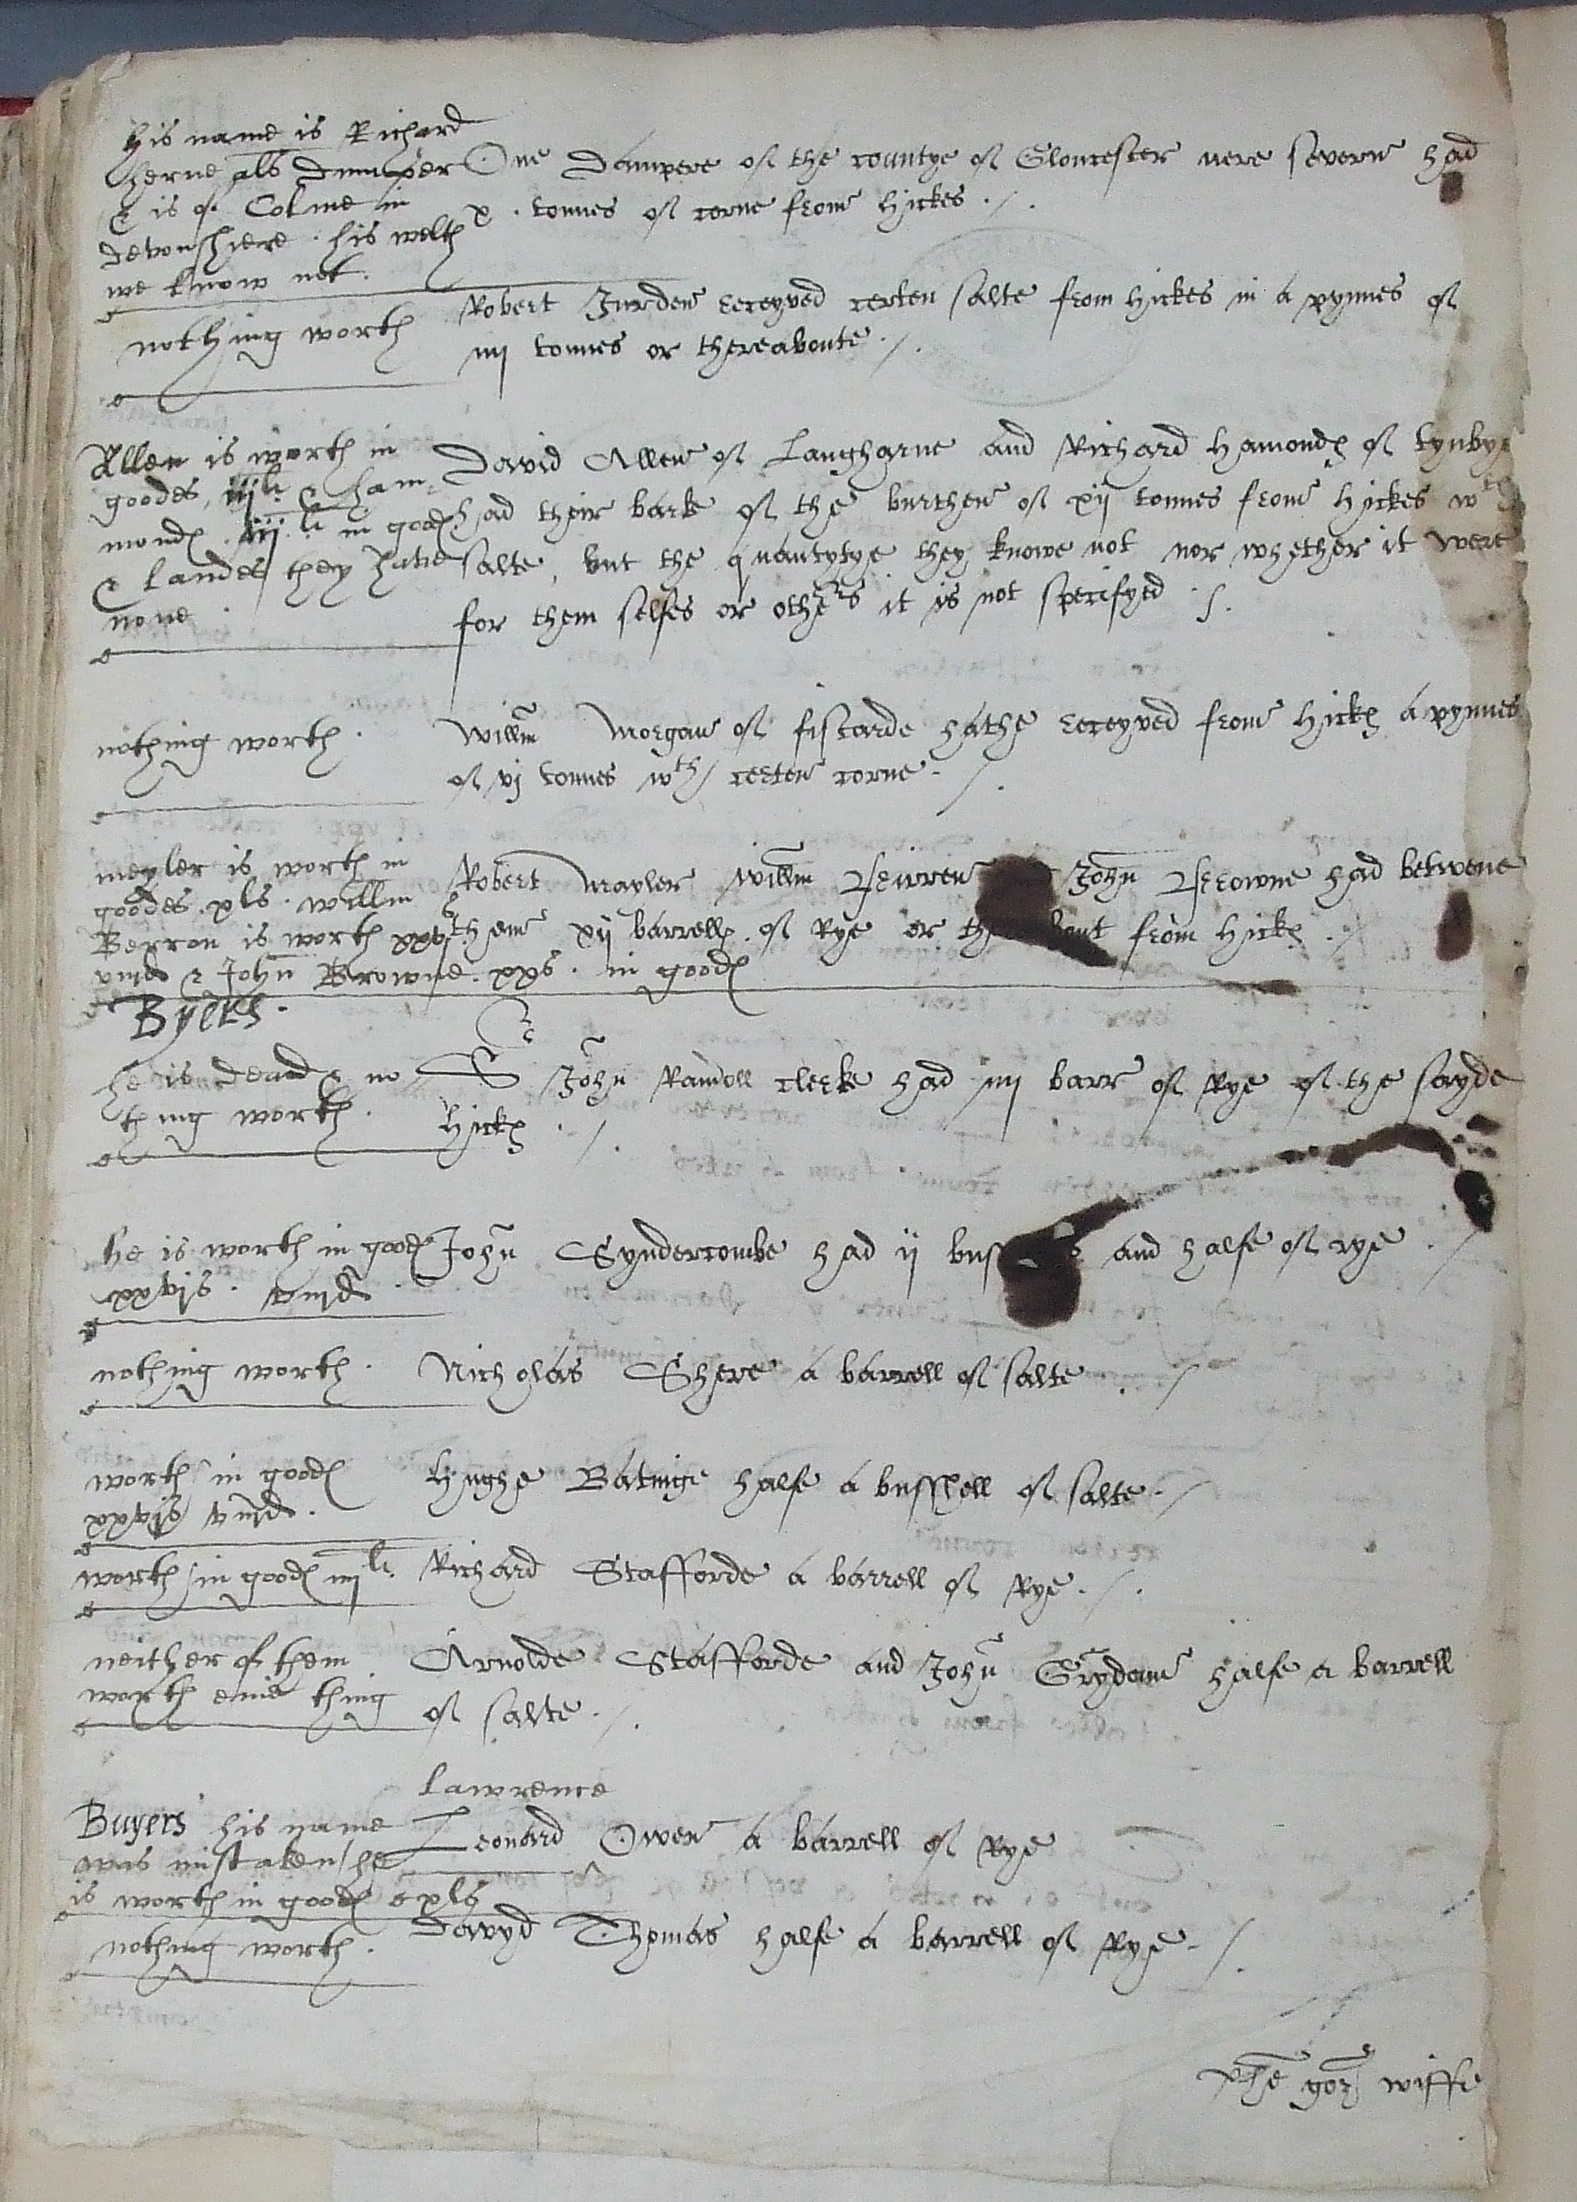 his name is Richard
herne als dumper
& is of Colme in
devonshiere . his welth
we know not .
One dampere of the countye of Gloucester nere severne had
x . tonnes of corne frome Hickes . /.
nothing worth
Robert Jurden receyved certen salte from Hickes in a pynnes of
iiij tonnes or thereaboute . /.
Allen is worth in
goodes iiij li & ham
mond iij li in good
& landes they have
none .
David Allen of Langharne and Richard Hamond of Tynbye
had their bark of the burthen of xij tonnes frome Hickes wth
salte , but the quantytye they knowe not nor whether it were
for them selfes or others it is not specifyed . /.
nothing worth .
Willm Morgan of fiscarde hathe receyved frome Hick a pynnes
of vj tonnes wth certen corne . /.
meyler is worth in
goodes xls . willm
Berron is worth xxvjs
viijd & John Browne . xxs . in good
Robert Mayler Willm John Browne had betwene
them xij barrell of Rye or from Hick . /
Byers .
he is dead & no
thing worth .
Sr John Randoll clerke had iiij barr of Rye of the sayde
Hick . /.
he is worth in good
xxvjs . viijd .
John Syndercombe had ij and halfe of rye . /
nothing worth .
Nicholas Shere a barrell of salte . /
worth in good
xxvjs viijd .
Hughe Batnige halfe a busshell of salte . /
worth in good iiij li .
Richard Stafforde a barrell of Rye . /.
neither of them
worth enie thing
Arnolde Stafforde and John halfe a barrell
of salte . /.
Lawrence
Buyers his name
was mistaken / he
is worth in good xls
Leonard Owen a barrell of Rye
nothing worth .
Davyd Thomas halfe a barrell of Rye . /.
wiffe